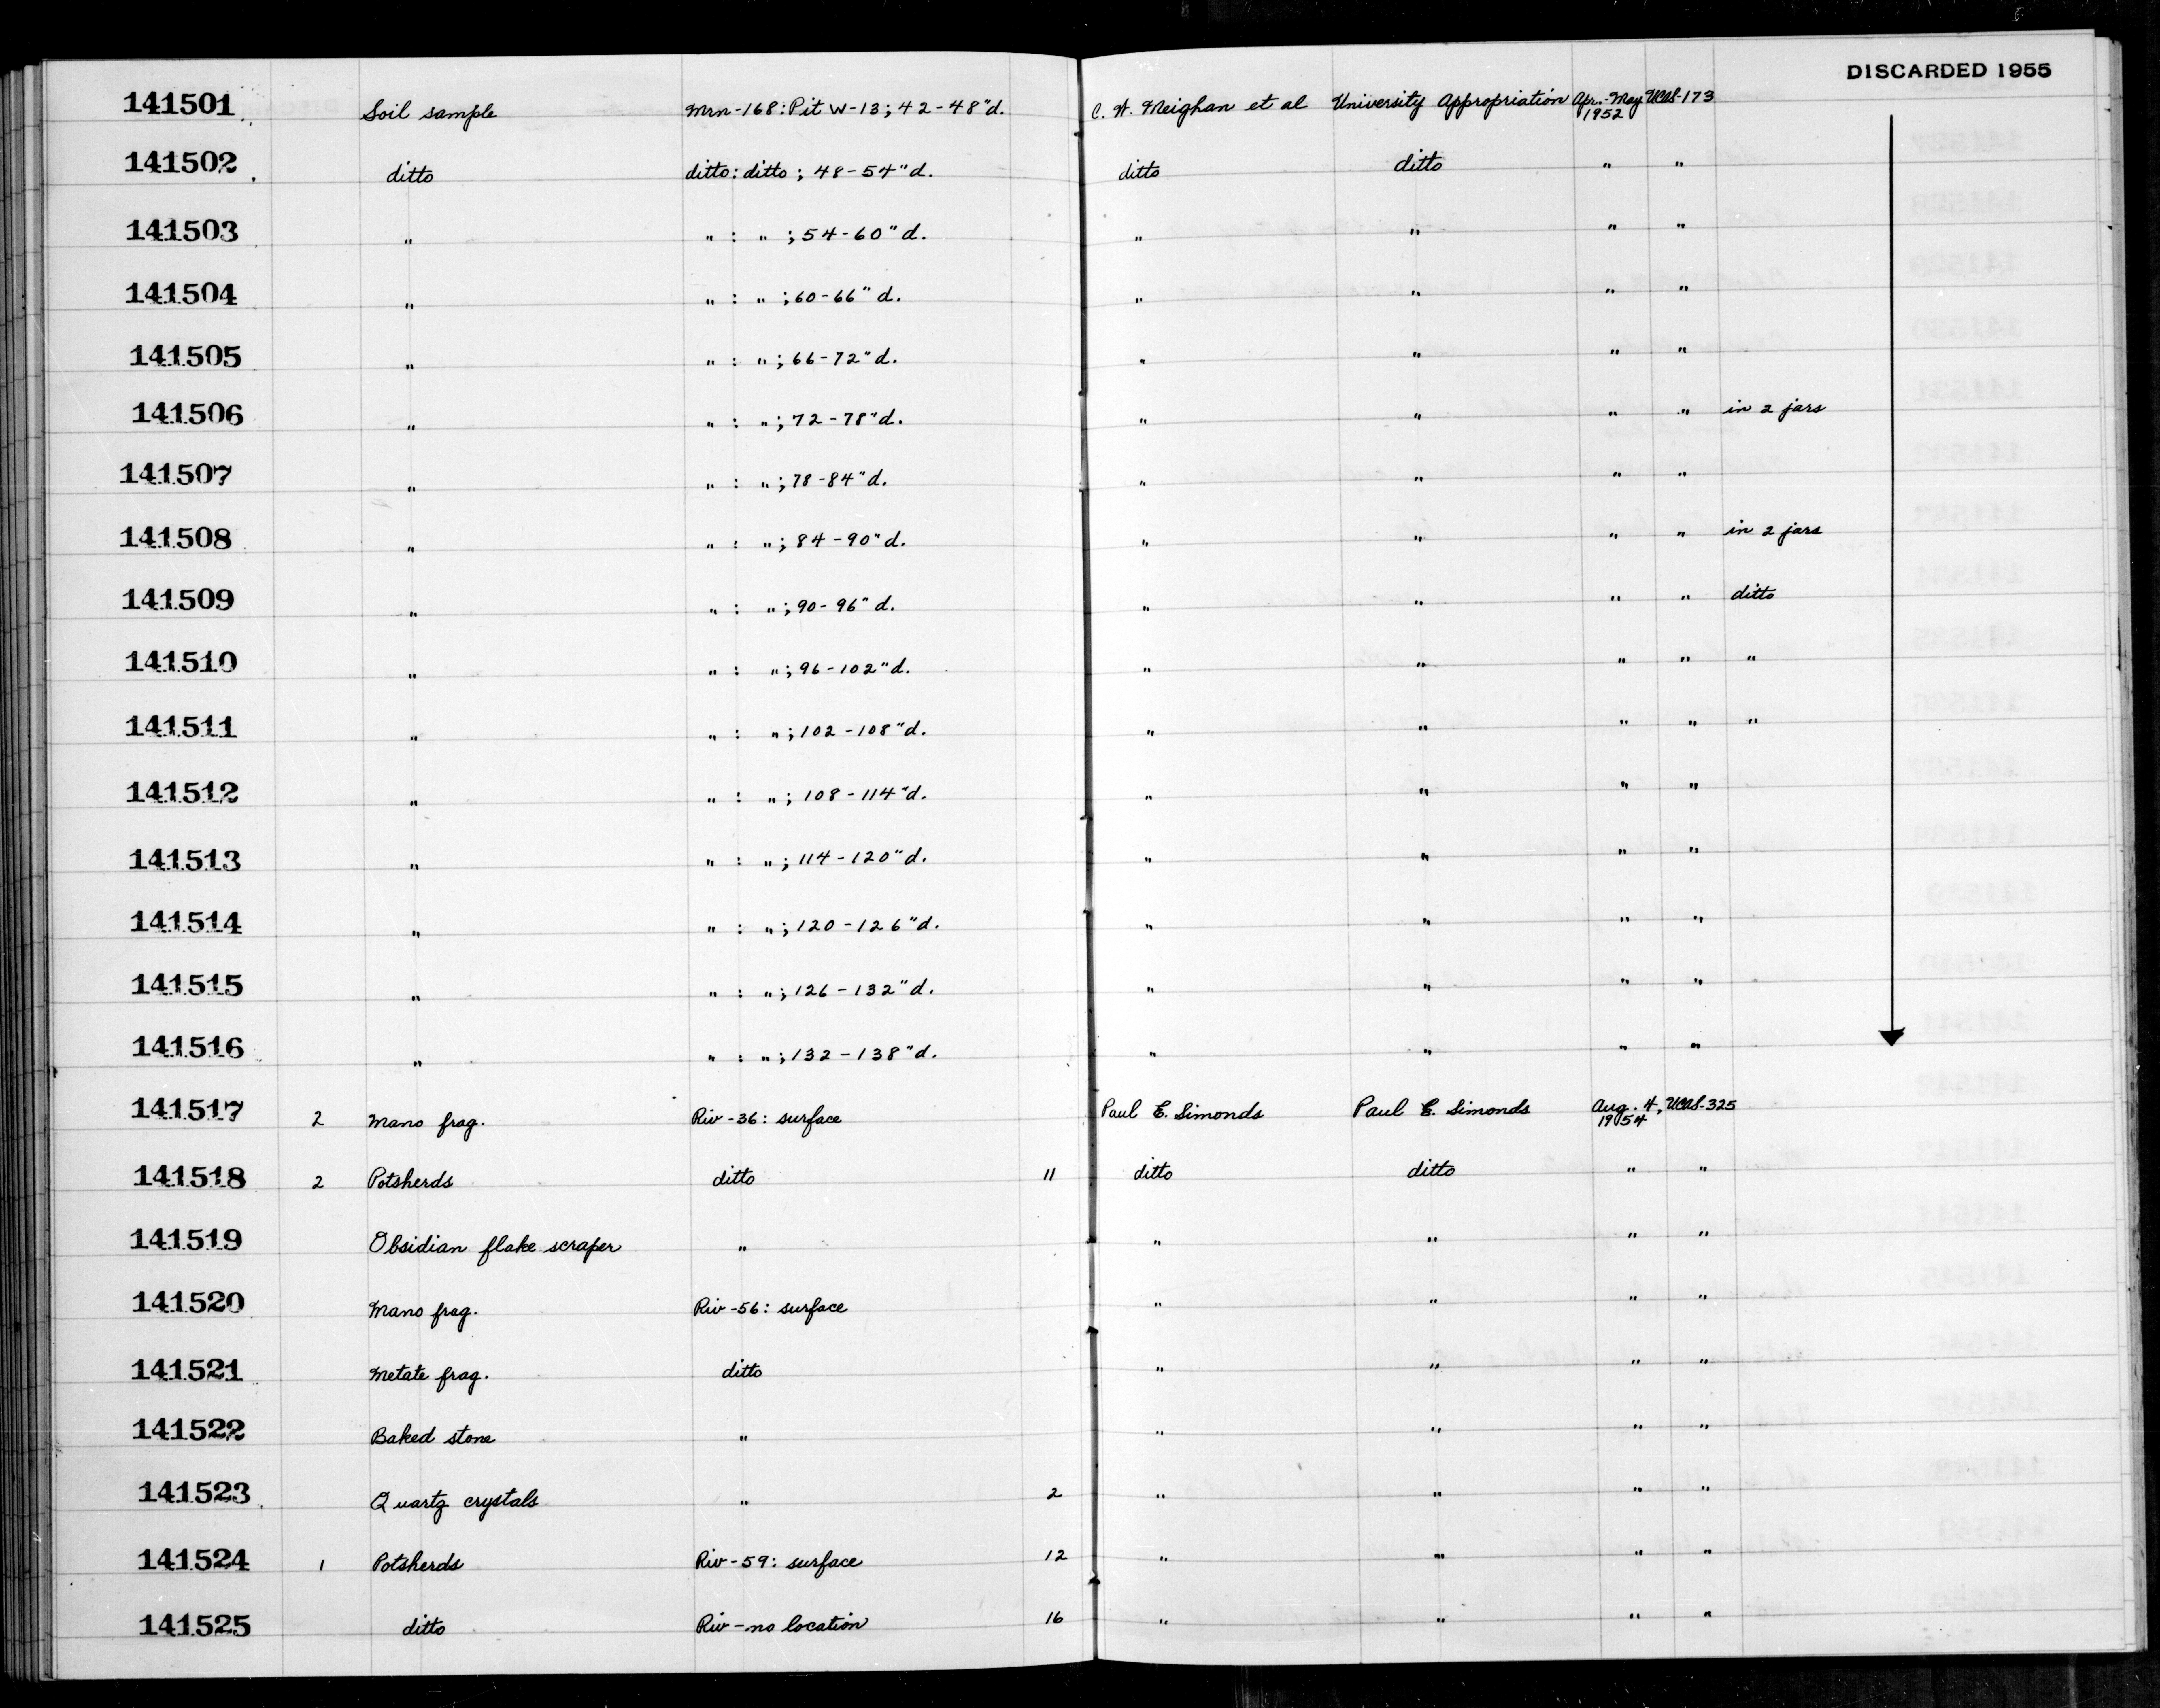 DISCARDED 1955
141501 Soil sample Mrn-168: Pit W-13; 42-48"d. C. W. Meighan et al University Appropriation Apr.-May 1952 UCAS-173
141502 ditto ditto: ditto; 48-54"d. ditto ditto " "
141503 " " : " ; 54-60"d. " " " "
141504 " " : " ; 60-66"d. " " " "
141505 " " : " ; 66-72"d. " " " "
141506 " " : " ; 72-78"d. " " " " in 2 jars
141507 " " : " ; 78-84"d. " " " "
141508 " " : " ; 84-90"d. " " " " in 2 jars
141509 " " : " ; 90-96"d. " " " " ditto
141510 " " : " ; 96-102"d. " " " " "
141511 " " : " ; 102-108"d. " " " " "
141512 " " : " ; 108-114"d. " " " "
141513 " " : " ; 114-120"d. " " " "
141514 " " : " ; 120-126"d. " " " "
141515 " " : " ; 126-132"d. " " " "
141516 " " : " ; 132-138"d. " " " "
141517 2 Mano frag. Riv-36: surface Paul E. Simonds Paul E. Simonds Aug. 4, 1954 UCAS-325
141518 2 Potsherds ditto 11 ditto ditto " "
141519 Obsidian flake scraper " " " " "
141520 Mano frag. Riv-56: surface " " " "
141521 Metate frag. ditto " " " "
141522 Baked stone " " " " "
141523 Quartz crystals " 2 " " " "
141524 1 Potsherds Riv-59: surface 12 " " " "
141525 ditto Riv-no location 16 " " " "